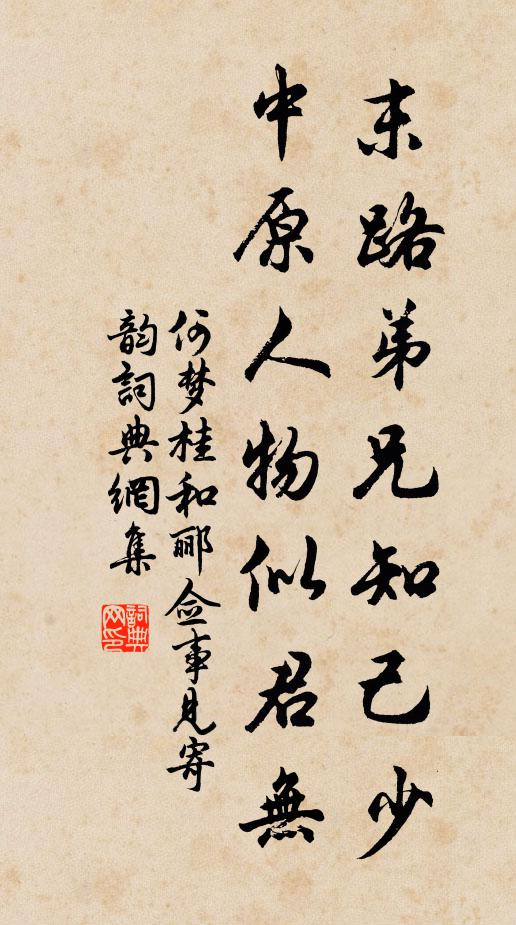 末路弟兄知己少
中原人物似君無
何梦桂和郦佥事見寄
韵詞典網集
詞典网印